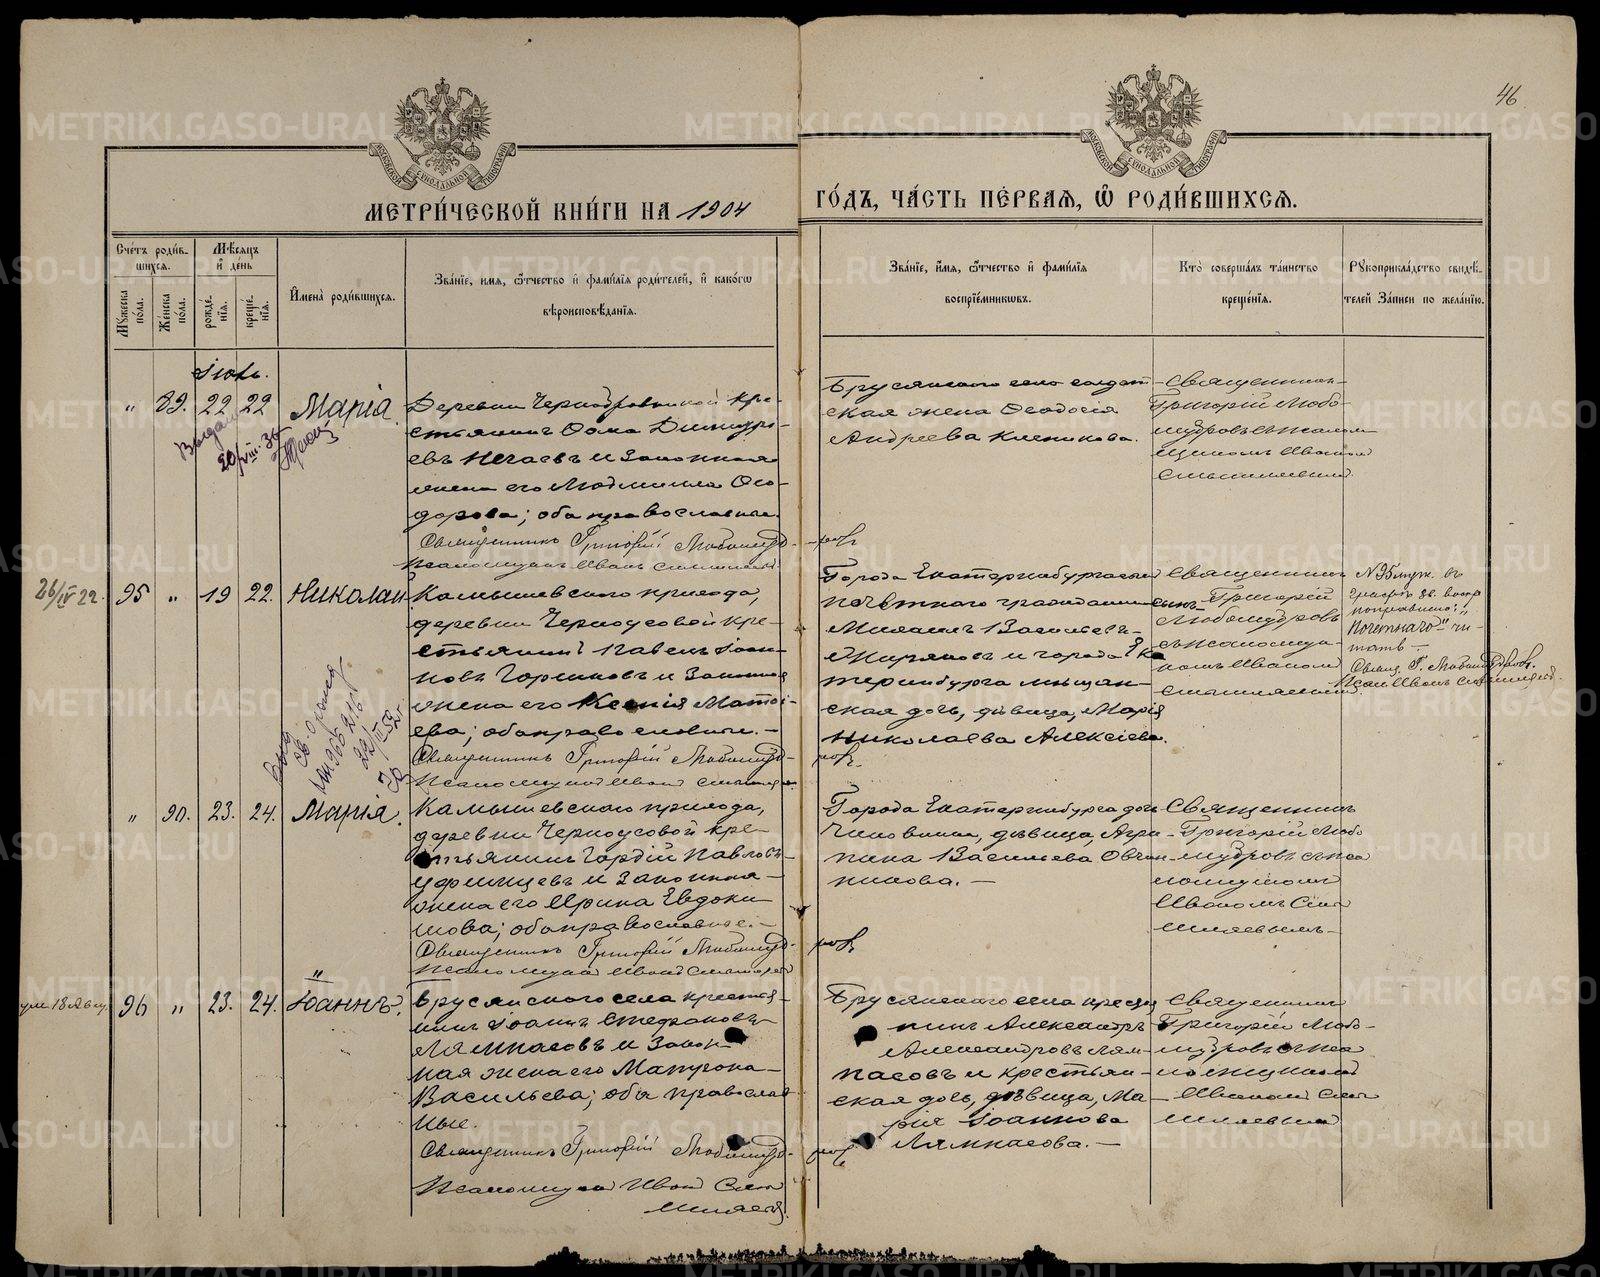 46
МОСКОВСКОЙ СѴНОДАЛЬНОЙ ТИПОГРАФИИ
МОСКОВСКОЙ СѴНОДАЛЬНОЙ ТИПОГРАФИИ
МЕТРИ́ЧЕСКОЙ КНИ́ГИ НА 1904
ГО́ДЪ, ЧА́СТЬ ПЕ́РВАЯ, Ѿ РОДИ́ВШИХСЯ.
Сче́тъ роди́в-
шихся.
Му́жеска
по́ла.
Же́нска
по́ла.
Мѣ́сяцъ
и де́нь
рожде́-
нїя.
креще́-
нїя.
И҆мена̀ роди́вшихся.
Зва́нїе, и҆́мя, ѻ҆́тчество и҆ фами́лїя роди́телей, и҆ како́гѡ
вѣроисповѣ́данїя.
Зва́нїе, и҆́мя, ѻ҆́тчество и҆ фами́лїя
воспрїе́мниковъ.
Кто̀ соверша́лъ та́инство
креще́нїя.
Рꙋкоприкла́дство свидѣ́-
телей За́писи по жела́нїю.
Іюль.
" 89. 22 22 Марія.
Деревни Черноусовой кре-
стьянинъ Ѳома Димитрі-
евъ Нечаевъ и законная
жена его Людмилла Ѳео-
дорова; оба православные.
Священникъ Григорій Любомудровъ
Псаломщикъ Иванъ
Брусянскаго села солдат-
ская жена Ѳеодосія
Андреева Клепикова.
Священникъ
Григорій Любо-
мудровъ съ псалом-
щикомъ Иваномъ
20/VIII-34
26/IV 22.
95 " 19 22. Николай
Камышевскаго прихода,
деревни Черноусовой кре-
стьянинъ Павелъ Іоан-
новъ Горшковъ и законная
жена его Ксенія Матѳі-
ева; оба православные.
Священникъ Григорій Любомудровъ
Псаломщикъ Иванъ
Города Екатеринбурга сынъ
почетнаго гражданина
Михаилъ Васильевъ
и города Ека
теринбурга мѣщан-
ская дочь, дѣвица, Марія
Николаева Алексѣева.
Священникъ
Григорій
Любомудровъ
съ псаломщи-
комъ Иваномъ
№ 95 муж. въ
графѣ зв. воспр
поправлено:
"почетнаго" чи-
тать —
Свящ. Г. Любомудровъ.
Псал. Иванъ
" 90. 23. 24. Марія.
Камышевскаго прихода,
деревни Черноусовой кре-
стьянинъ Гордій Павловъ
и законная
жена его Ирина Евдоки-
мова; оба православные.
Священникъ Григорій Любомудровъ
Псаломщикъ Иванъ
Города Екатеринбурга дочь
чиновника, дѣвица, Агри-
пина Васильева Овчин-
никова.
Священникъ
Григорій Любо-
мудровъ съ пса
ломщикомъ
Иваномъ
ум. 18 Авгу.
96 " 23. 24. Іоаннъ.
Брусянскаго села крестья-
нинъ Іоаннъ Стефановъ
Лямпасовъ и закон-
ная жена его Матрона
Васильева; оба православ
ные.
Священникъ Григорій Любомудровъ
Псаломщикъ Иванъ
Брусянскаго села крестья
нинъ Александръ
Александровъ Лям-
пасовъ и крестьян-
ская дочь, дѣвица, Ма-
рія Іоаннова
Лямпасова.
Священникъ
Григорій Любо-
мудровъ съ пса
ломщикомъ
Иваномъ
METRIKI.GASO-URAL.RU